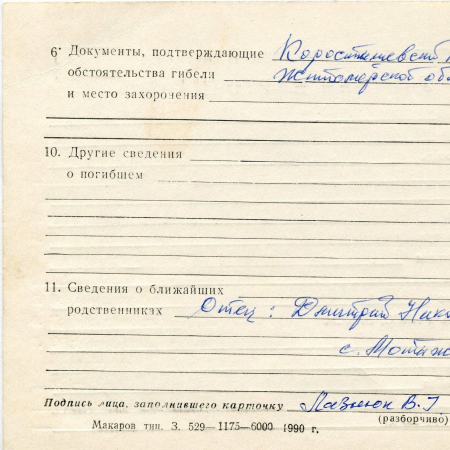 6· Документы, подтверждающие Коростишевский
обстоятельства гибели Житомирской обл
и место захоронения
10. Другие сведения
о погибшем
11. Сведения о ближайших
родственниках Отец: Дмитрий Ники
с. Мотиж
Подпись лица, заполнившего карточку В. Г.
(разборчиво)
Макаров тип. З. 529—1175—6000 1990 г.